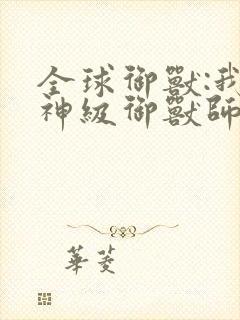 全球御獸:我
神級御獸師
華菱